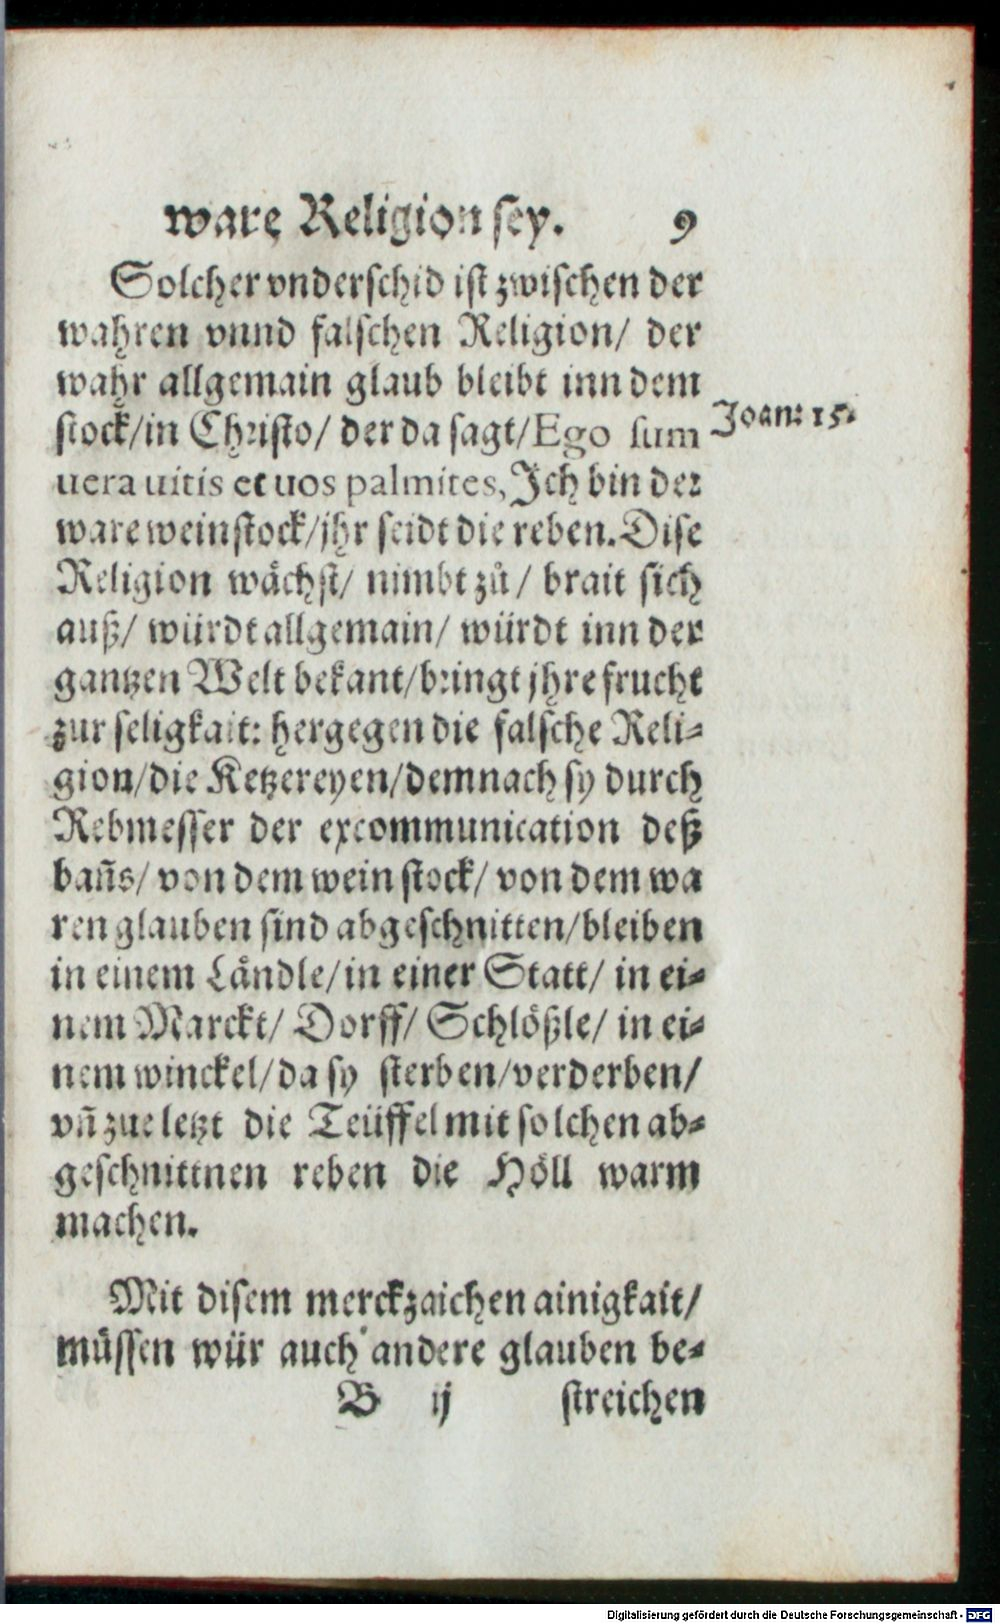 ware Religion sey. 9
Solcher vnderschid ist zwischen der
wahren vnnd falschen Religion/ der
wahr allgemain glaub bleibt inn dem
stock/in Christo/ der da sagt/Ego sum
Joan: 15.
uera uitis et uos palmites, Jch bin der
ware weinstock/jhr seidt die reben. Dise
Religion wächst/ nimbt zů/ brait sich
auß/ würdt allgemain/ würdt inn der
gantzen Welt bekant/bringt jhre frucht
zur seligkait: hergegen die falsche Reli-
gion/die Ketzereyen/demnach sy durch
Rebmesser der excommunication deß
bañs/ von dem weinstock/ von dem wa
ren glauben sind abgeschnitten/bleiben
in einem Ländle/in einer Statt/ in ei-
nem Marckt/ Dorff/ Schlößle/ in ei-
nem winckel/da sy sterben/verderben/
vñ zue letzt die Teüffel mit solchen ab-
geschnittnen reben die Höll warm
machen.
Mit disem merckzaichen ainigkait/
müssen wür auch andere glauben be-
B ij streichen
Digitalisierung gefördert durch die Deutsche Forschungsgemeinschaft - DFG